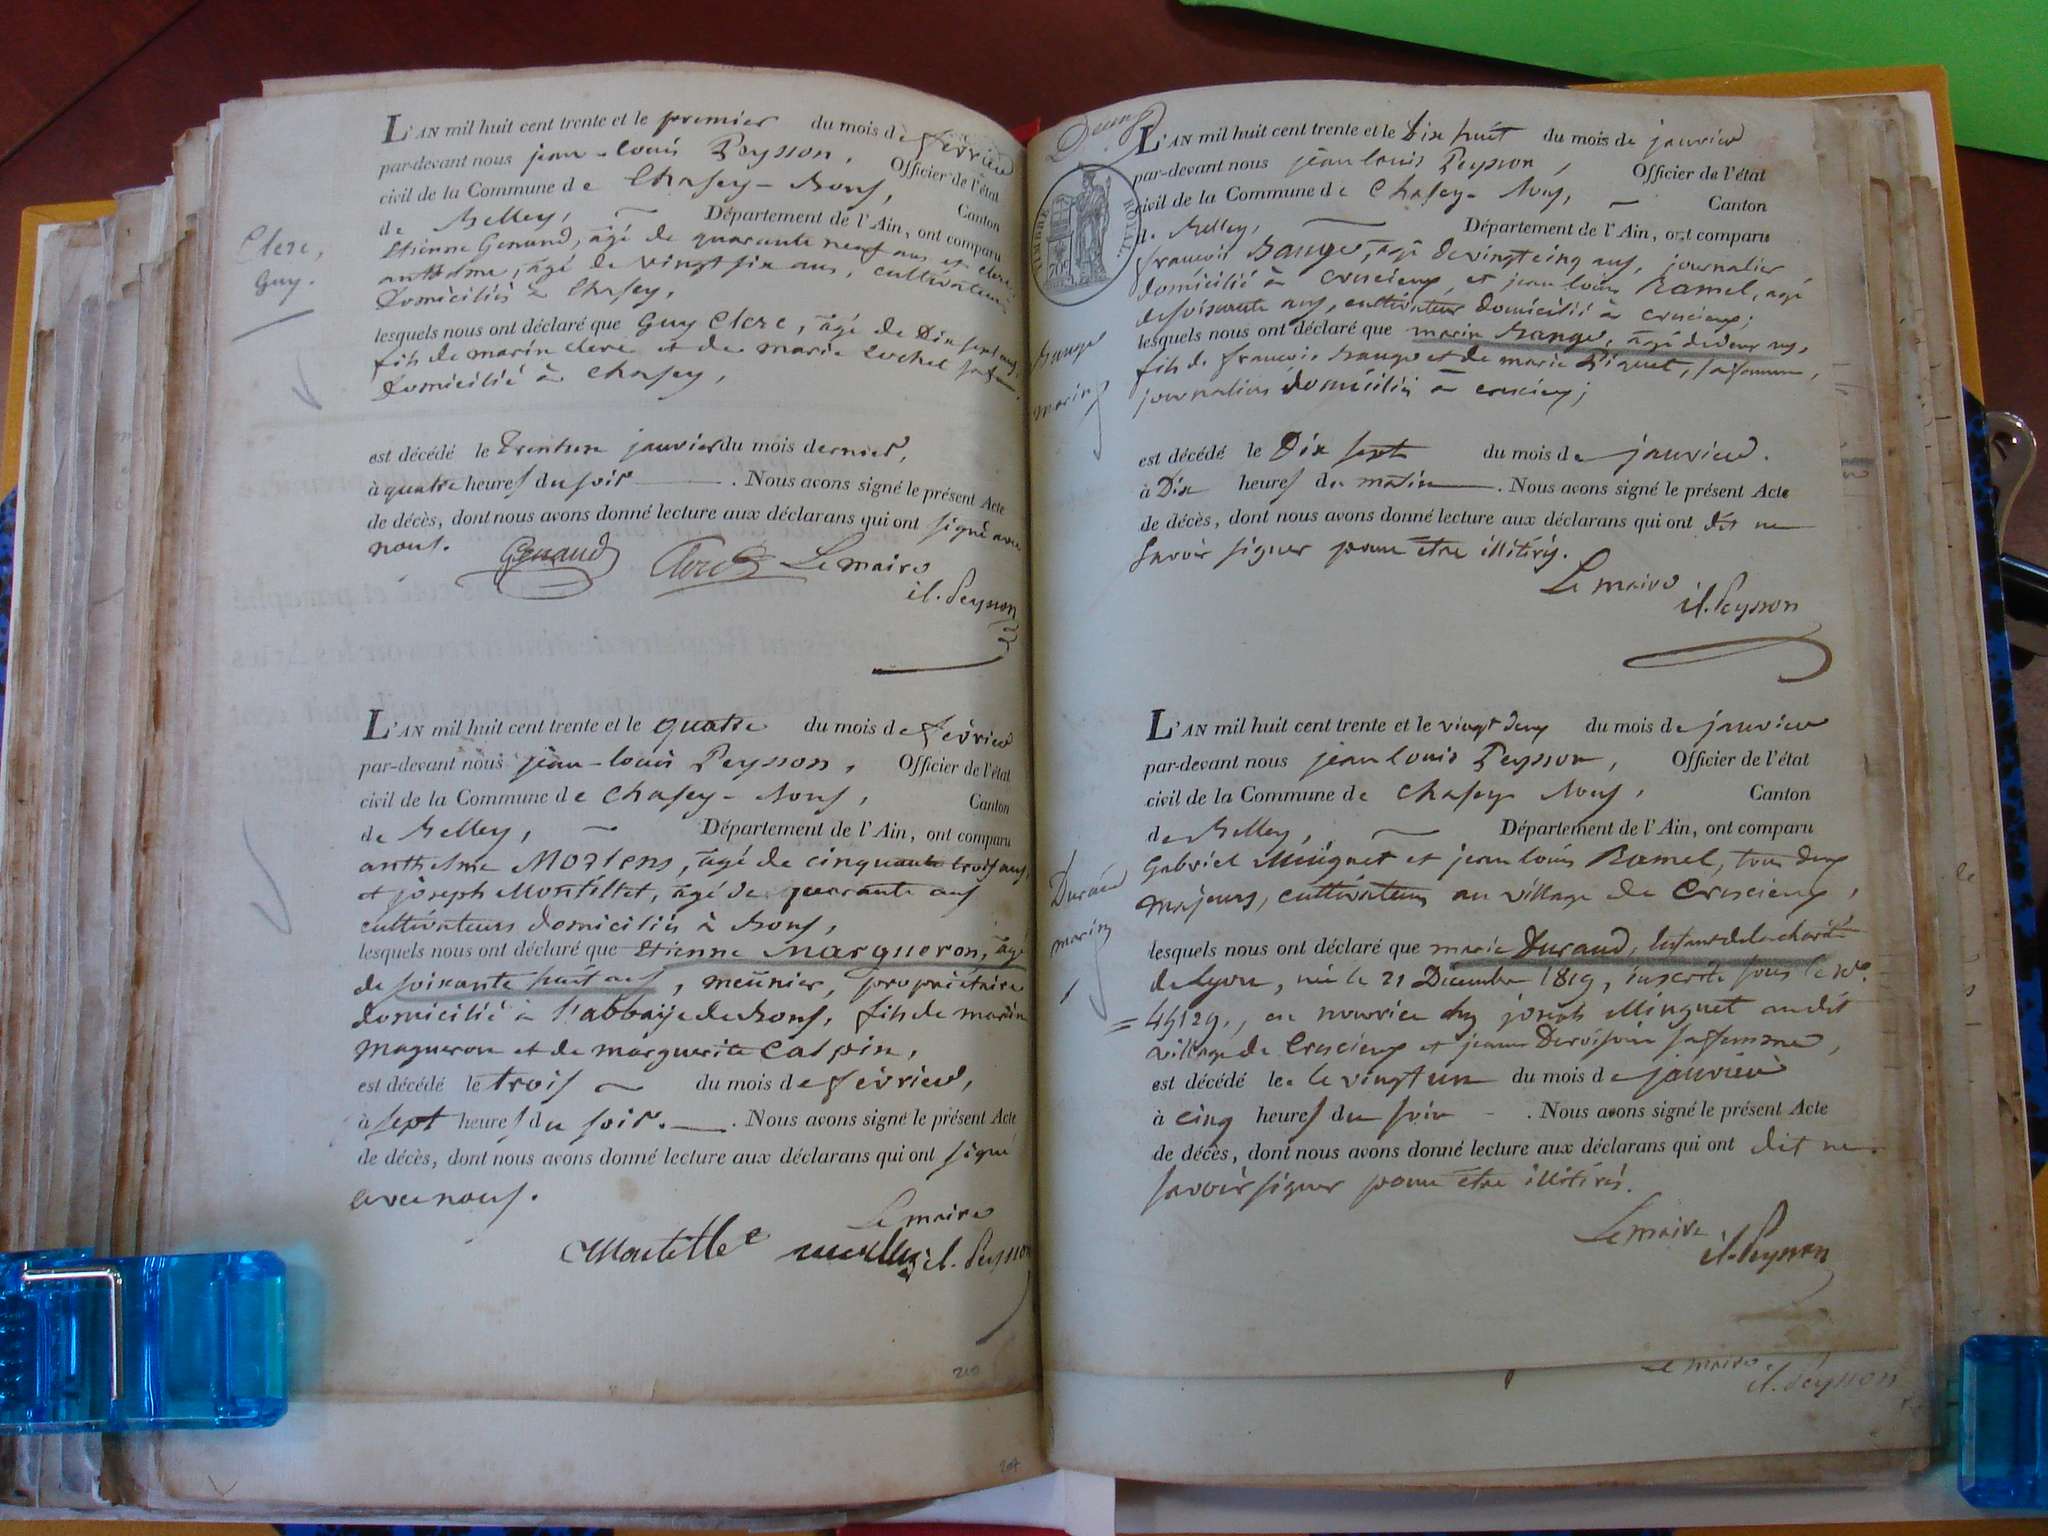 L'AN mil huit cent trente et le premier du mois de février
par-devant nous jean-louis Peysson, Officier de l'état
civil de la Commune de Chasey-Bons, Canton
de Belley, Département de l'Ain, ont comparu
Etienne Genaud, âgé de quarante neuf ans et clerc
anthelme, âgé de vingt six ans, cultivateurs
Domiciliés à Chasey,
Clerc,
Guy.
lesquels nous ont déclaré que Guy Clerc, âgé de Dix sept ans,
fils de marin clerc et de marie Lochet sa femme
Domicilié à Chasey,
est décédé le trente un janvier du mois dernier,
à quatre heures du soir. Nous avons signé le présent Acte
de décès, dont nous avons donné lecture aux déclarans qui ont signé avec
nous.
Genaud Clerc Le maire
jl. Peysson
L'AN mil huit cent trente et le quatre du mois de février
par-devant nous jean-louis Peysson, Officier de l'état
civil de la Commune de Chasey-Bons, Canton
de Belley, Département de l'Ain, ont comparu
anthelme Mortens, âgé de cinquante trois ans,
et joseph Montillet, âgé de quarante ans
cultivateurs domiciliés à Bons,
lesquels nous ont déclaré que Etienne Margueron, âgé
de soixante huit ans, meunier, propriétaire
domicilié à l'abbaije de Bons, fils de marin
Magueron et de marguerite Calpin,
est décédé le trois du mois de février,
à sept heures du soir. Nous avons signé le présent Acte
de décès, dont nous avons donné lecture aux déclarans qui ont signé
avec nous.
Le maire
Montillet jl. Peysson
210
207
Deux
TIMBRE ROYAL
70c
L'AN mil huit cent trente et le Dix huit du mois de janvier
par-devant nous jean louis Peysson, Officier de l'état
civil de la Commune de Chasey-Bons, Canton
de Belley, Département de l'Ain, ont comparu
françois Bange, âgé de vingt cinq ans, journalier
domicilié à Crescieux, et jean louis Ramel, agé
de soixante ans, cultivateur domicilié à crescieux;
Bange
marin
lesquels nous ont déclaré que marin Bange, âgé de deux ans,
fils de françois Bange et de marie Piquet, sa femme,
journaliers domiciliés à crescieux;
est décédé le Dix sept du mois de janvier.
à Dix heures du matin. Nous avons signé le présent Acte
de décès, dont nous avons donné lecture aux déclarans qui ont dit ne
savoir signer pour être illitérés.
Le maire
jl. Peysson
L'AN mil huit cent trente et le vingt deux du mois de janvier
par-devant nous jean louis Peysson, Officier de l'état
civil de la Commune de Chasey Bons, Canton
de Belley, Département de l'Ain, ont comparu
Gabriel Minguet et jean louis Ramel, tous deux
majeurs, cultivateurs au village de Crescieux,
Durand
marin
lesquels nous ont déclaré que marie Durand, enfant de la charité
de Lyon, né le 21 Décembre 1819, inscrite sous le No.
45129., en nourrice chez joseph Minguet audit
village de Crescieux et jeanne sa femme,
est décédé le le vingt un du mois de janvier
à cinq heures du soir. Nous avons signé le présent Acte
de décès, dont nous avons donné lecture aux déclarans qui ont dit ne
savoir signer pour être illitérés.
Le maire
jl. Peysson
Le maire
jl. Peysson